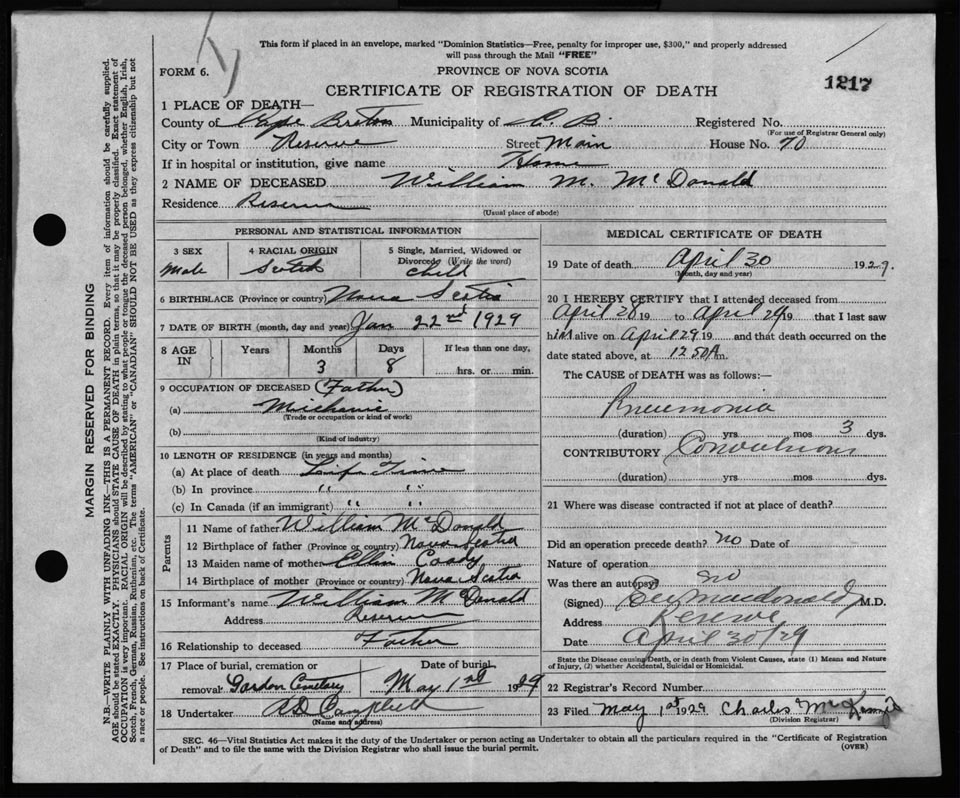 This form if placed in an envelope, marked "Dominion Statistics—Free, penalty for improper use, $300," and properly addressed
will pass through the Mail "FREE"
FORM 6.
PROVINCE OF NOVA SCOTIA
1217
CERTIFICATE OF REGISTRATION OF DEATH
1 PLACE OF DEATH—
County of Cape Breton Municipality of C. B. Registered No.
(For use of Registrar General only)
City or Town Reserve Street Main House No. 70
If in hospital or institution, give name Home
2 NAME OF DECEASED William M. McDonald
Residence Reserve
(Usual place of abode)
PERSONAL AND STATISTICAL INFORMATION
3 SEX Male
4 RACIAL ORIGIN Scotch
5 Single, Married, Widowed or Divorced (Write the word) Child
6 BIRTHPLACE (Province or country) Nova Scotia
7 DATE OF BIRTH (month, day and year) Jan 22nd 1929
8 AGE IN Years Months 3 Days 8 If less than one day, hrs. or min.
9 OCCUPATION OF DECEASED (Father)
(a) Michanic
(Trade or occupation or kind of work)
(b)
(Kind of industry)
10 LENGTH OF RESIDENCE (in years and months)
(a) At place of death Life Time
(b) In province " "
(c) In Canada (if an immigrant) " "
Parents
11 Name of father William McDonald
12 Birthplace of father (Province or country) Nova Scotia
13 Maiden name of mother Ellen Coady
14 Birthplace of mother (Province or country) Nova Scotia
15 Informant's name William McDonald
Address Reserve
16 Relationship to deceased Father
17 Place of burial, cremation or removal Gordon Cemetary Date of burial May 1st 1929
18 Undertaker A.D. Campbell
(Name and address)
MEDICAL CERTIFICATE OF DEATH
19 Date of death April 30 1929.
(Month, day and year)
20 I HEREBY CERTIFY that I attended deceased from
April 28 19 to April 29 19 that I last saw
him alive on April 29 19 and that death occurred on the
date stated above, at 12 50 A m.
The CAUSE of DEATH was as follows:—
Pneumonia
(duration) yrs mos 3 dys.
CONTRIBUTORY Convulsions
(duration) yrs mos dys.
21 Where was disease contracted if not at place of death?
Did an operation precede death? no Date of
Nature of operation
Was there an autopsy? no
(Signed) macdonald, M.D.
Address Reserve
Date April 30/29
State the Disease causing Death, or in death from Violent Causes, state (1) Means and Nature
of Injury, (2) whether Accidental, Suicidal or Homicidal.
22 Registrar's Record Number
23 Filed May 1st 1929 Charles McKenzie
(Division Registrar)
SEC. 46—Vital Statistics Act makes it the duty of the Undertaker or person acting as Undertaker to obtain all the particulars required in the "Certificate of Registration
of Death" and to file the same with the Division Registrar who shall issue the burial permit.
(OVER)
MARGIN RESERVED FOR BINDING
N.B.—WRITE PLAINLY WITH UNFADING INK—THIS IS A PERMANENT RECORD. Every item of information should be carefully supplied.
AGE should be stated EXACTLY. PHYSICIANS should STATE CAUSE OF DEATH in plain terms, so that it may be properly classified. Exact statement of
OCCUPATION is very important. RACIAL ORIGIN will be described by stating to what people or tongue the deceased person belonged, whether English, Irish,
Scotch, French, German, Russian, Ruthenian, etc. The terms "AMERICAN" or "CANADIAN" SHOULD NOT BE USED as they express citizenship but not
a race or people. See instructions on back of Certificate.